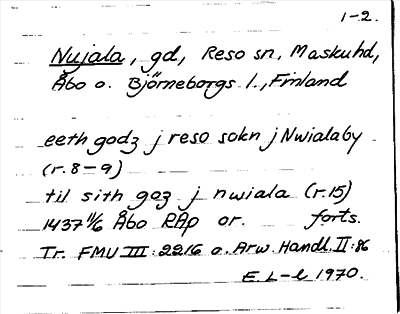 1-2.
Nujala, gd, Reso sn, Maskuhd,
Åbo o. Björneborgs l., Finland
eeth godz j reso sokn j Nwialaby
(r. 8-9)
til sith goz j nwiala (r. 15)
1437 11/6 Åbo RAp or. forts.
Tr. FMU III: 2216 o. Arw. Handl. II: 86
E. L-l 1970.